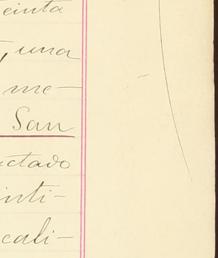 einta
, una
me-
San
actado
inti-
cali-